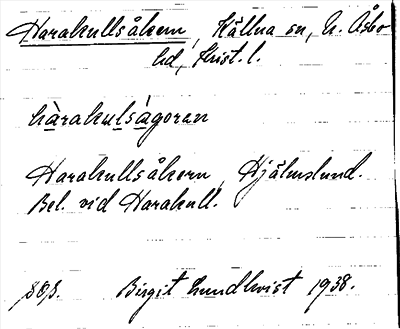 Harakullsåkern, Källna sn, N. Åsbo
hd, Krist. l.
hàrakulsågoren
Harakullsåkern, Hjälmslund.
Bel. vid Harakull.
Birgit Lundkvist 1938.